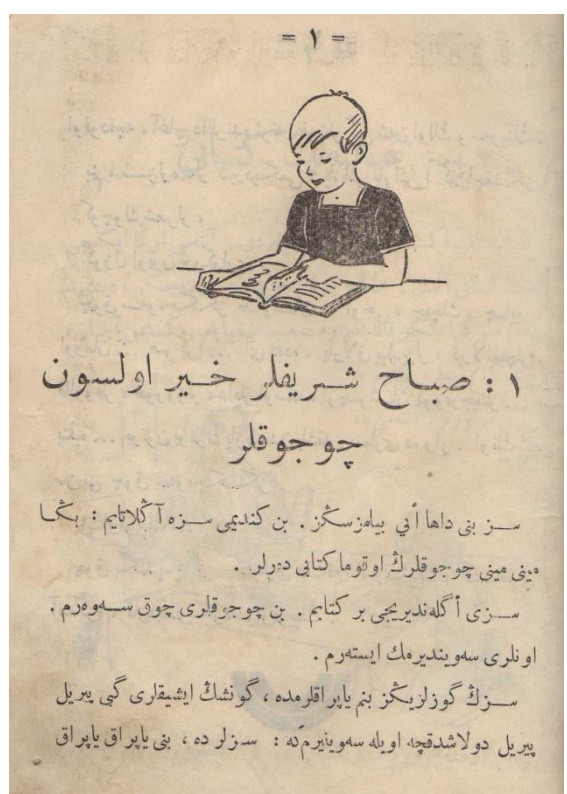 = ١ =
١ : صباح شريفلر خير اولسون
چوجوقلر
سز بنى داها أيى بيلمزسڭز . بن كنديمى سزه آڭلاتايم : بڭا
مينى مينى چوجوقلرڭ اوقوما كتابى دەرلر .
سزى أگلەنديريجى بر كتابم . بن چوجوقلرى چوق سەوەرم .
اونلرى سەوينديرمك ايستەرم .
سزڭ گوزلريڭز بنم ياپراقلرمده ، گونشڭ ايشيقلرى گبى پيريل
پيريل دولاشدقچه اويله سەوينيرم كه : سزلر ده ، بنى ياپراق ياپراق